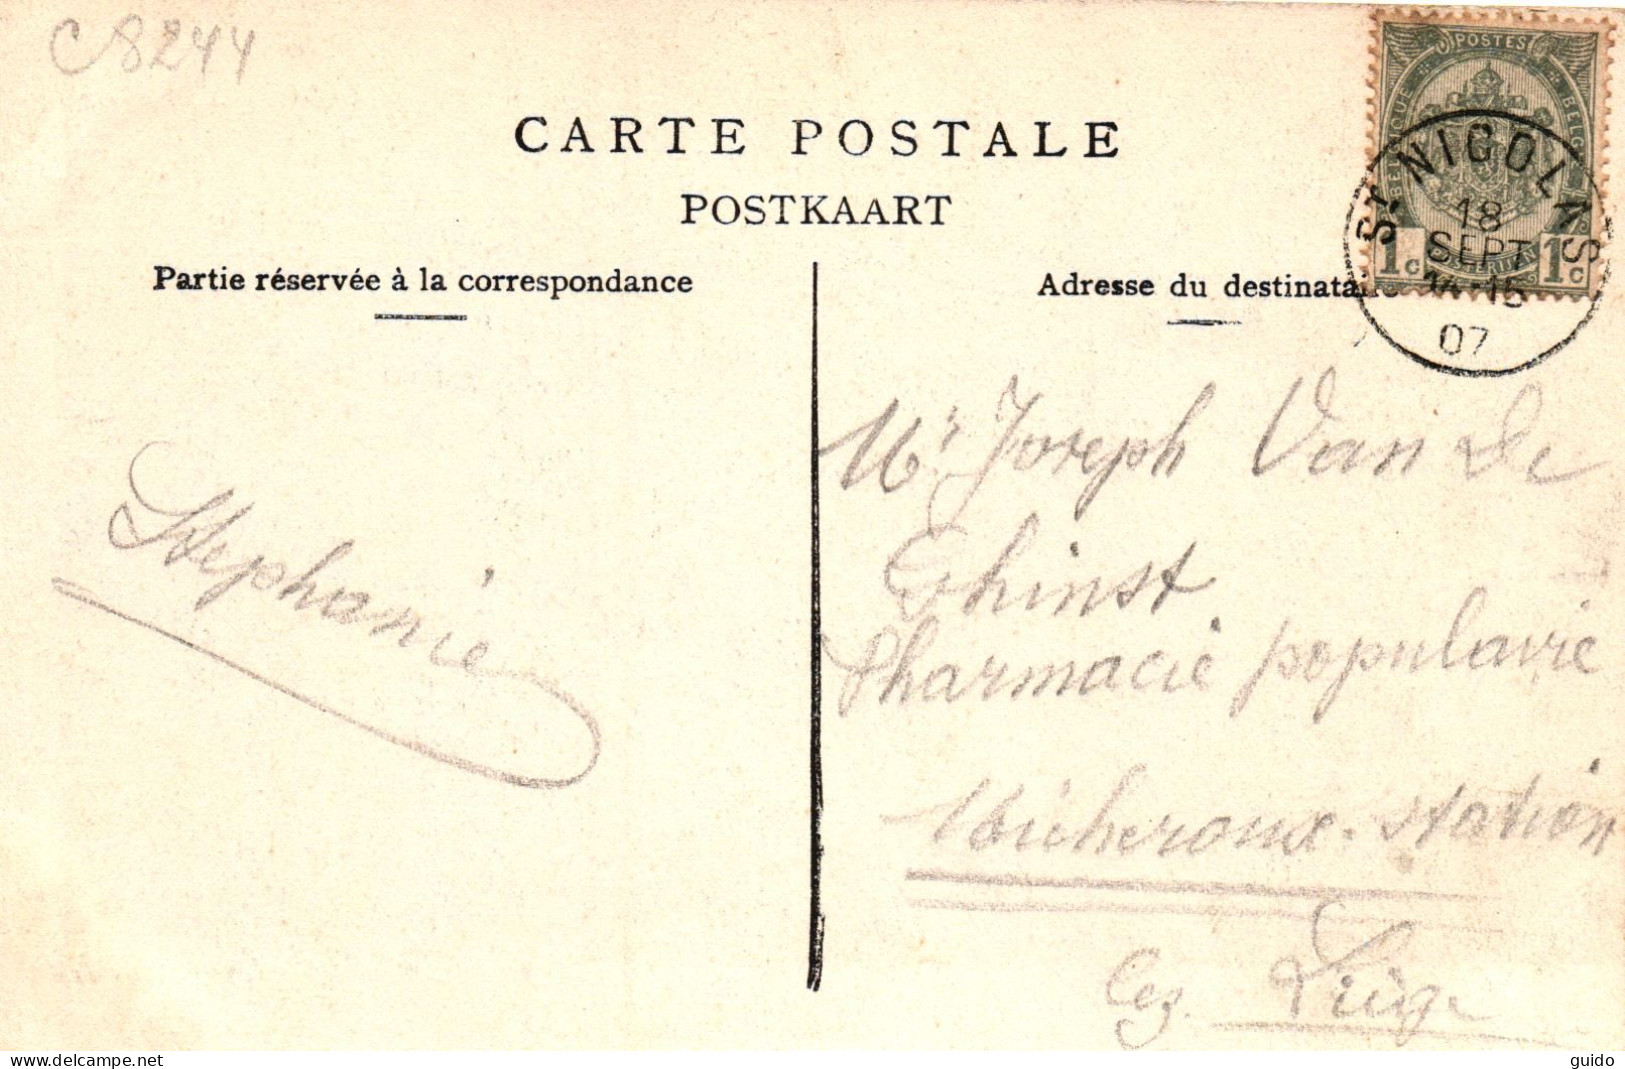 C8244
POSTES
BELGIQUE
BELGIË
1c
1c
ST NICOLAS
18
SEPT
14-15
07
CARTE POSTALE
POSTKAART
Partie réservée à la correspondance
Adresse du destinataire
Stephanie
Mr Joseph Van De
Ghinst
Pharmacie populaire
Micheroux-station
Lez Liège
delcampe.net
guido